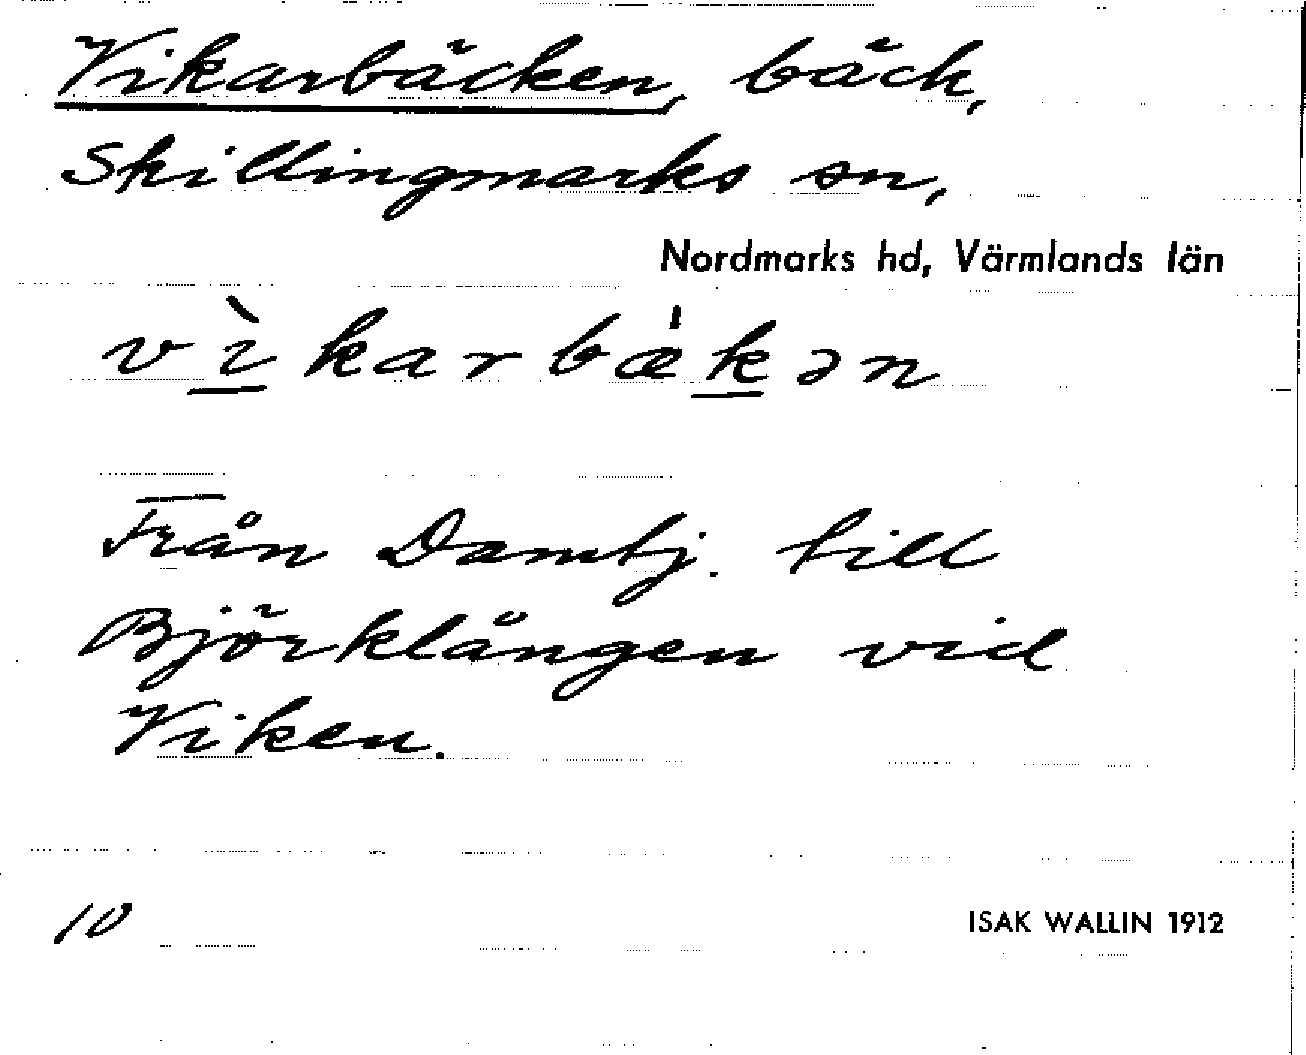 Vikarbäcken, bäck,
Skillingmarks sn,
Nordmarks hd, Värmlands län
vìkarbæ̍kən
Från Damtj. till
Björklången vid
Viken.
10
ISAK WALLIN 1912